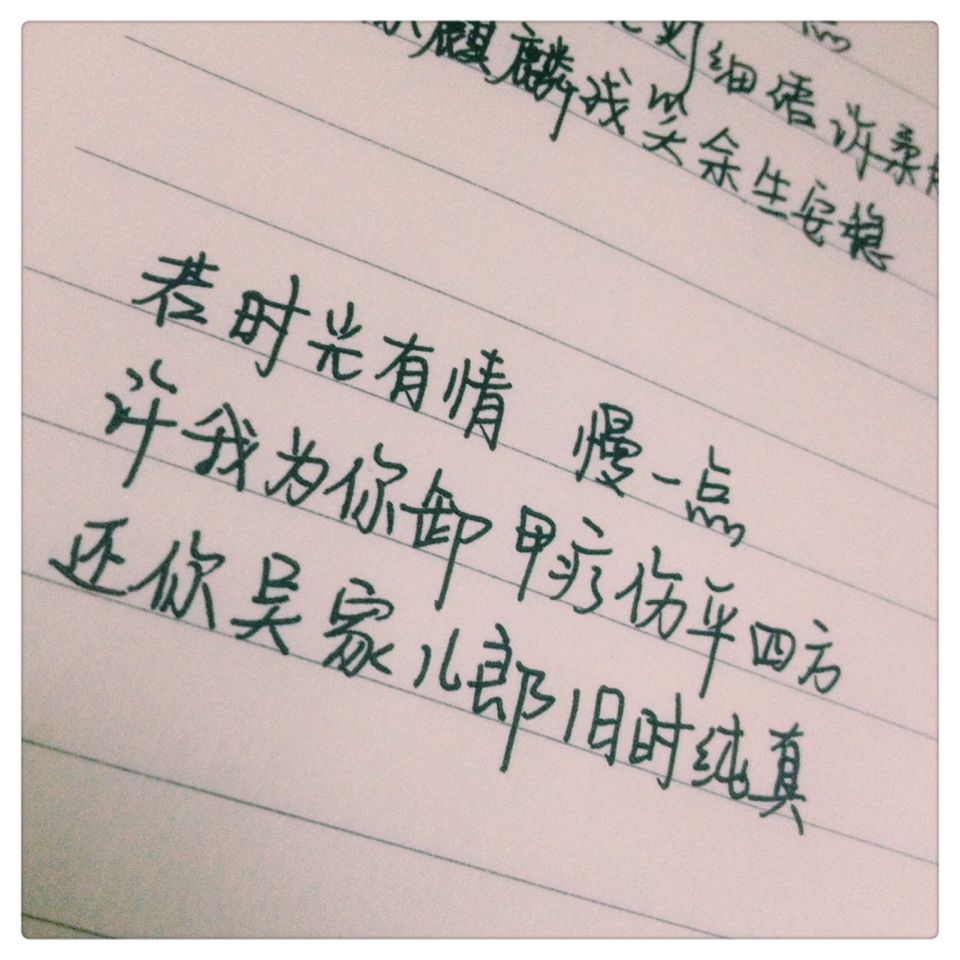 点
细语许柔
麒麟我笑余生安稳
若时光有情 慢一点
许我为你卸甲疗伤平四方
还你吴家儿郎旧时纯真